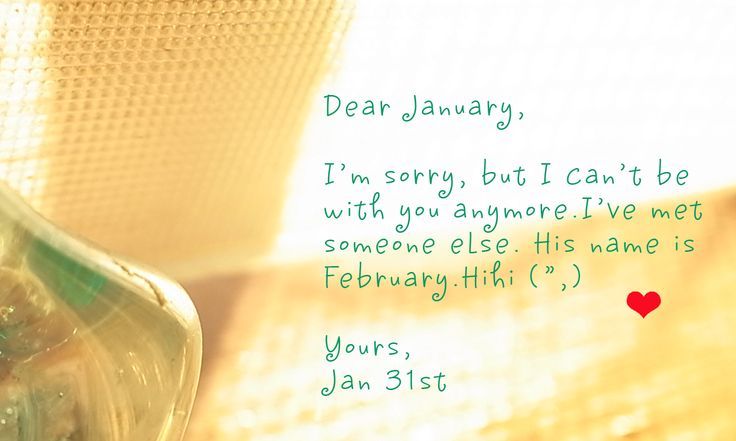 Dear January,
I'm sorry, but I can't be
with you anymore.I've met
someone else. His name is
February.Hihi (",)
Yours,
Jan 31st